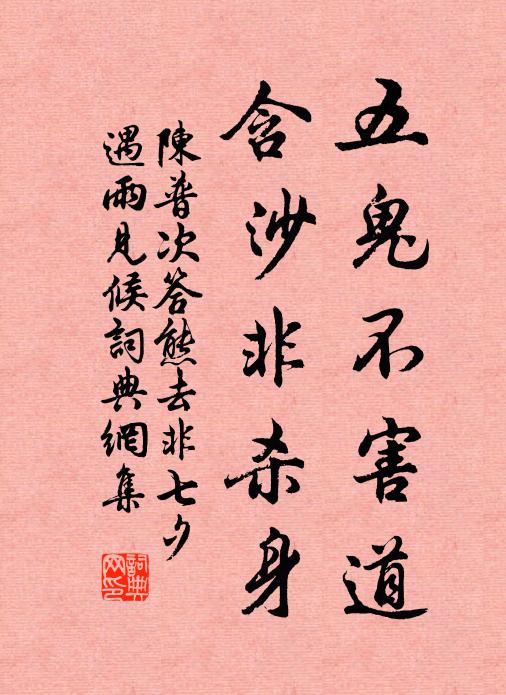 五鬼不害道
含沙非杀身
陳普次答熊去非七夕
遇雨見候詞典網集
詞典
网印